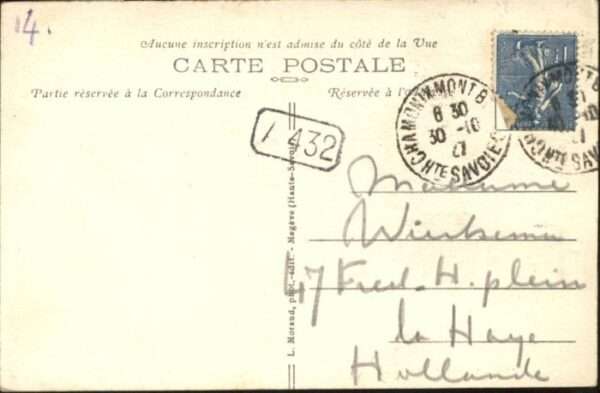 4.
Aucune inscription n'est admise du côté de la Vue
CARTE POSTALE
Partie réservée à la Correspondance
Réservée à l'
CHAMONIX MONT B
8 30
30 -10
27
HTE SAVOIE
1 432
L. Morand, phot.-édit. - Megève (Haute-Savoie)
Madame
Wiersema
47 Fred. H. plein
la Haye
Hollande